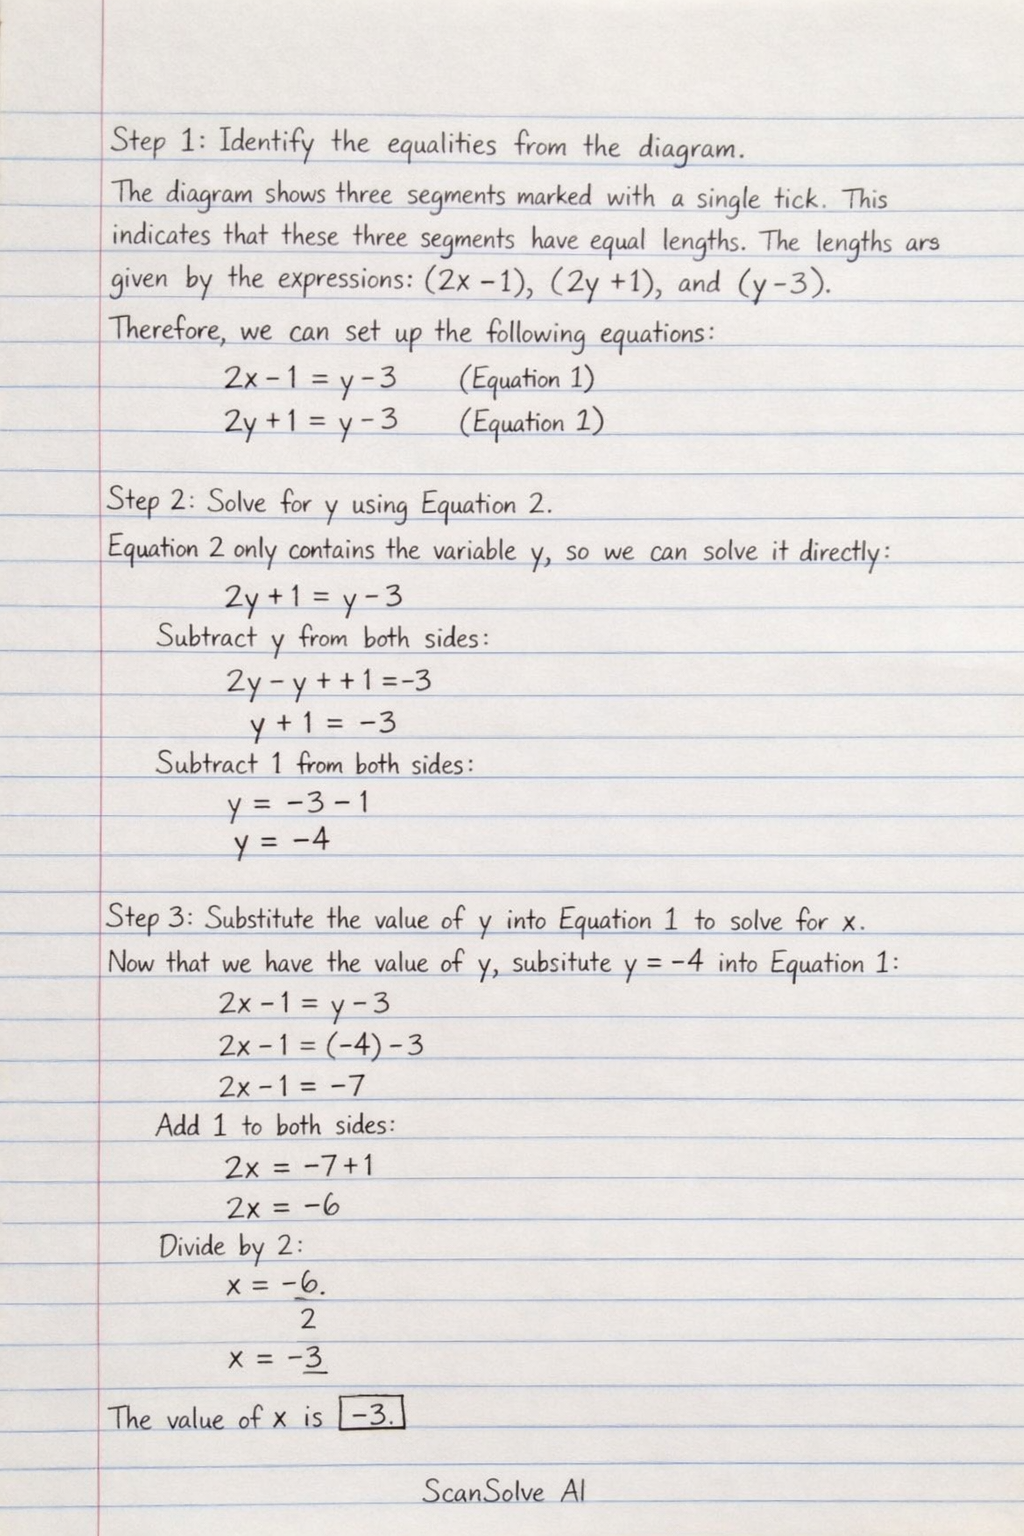 Step 1: Identify the equalities from the diagram.
The diagram shows three segments marked with a single tick. This
indicates that these three segments have equal lengths. The lengths ars
given by the expressions: (2x - 1), (2y + 1), and (y - 3).
Therefore, we can set up the following equations:
2x - 1 = y - 3 (Equation 1)
2y + 1 = y - 3 (Equation 1)
Step 2: Solve for y using Equation 2.
Equation 2 only contains the variable y, so we can solve it directly:
2y + 1 = y - 3
Subtract y from both sides:
2y - y + + 1 = -3
y + 1 = -3
Subtract 1 from both sides:
y = -3 - 1
y = -4
Step 3: Substitute the value of y into Equation 1 to solve for x.
Now that we have the value of y, subsitute y = -4 into Equation 1:
2x - 1 = y - 3
2x - 1 = (-4) - 3
2x - 1 = -7
Add 1 to both sides:
2x = -7 + 1
2x = -6
Divide by 2:
x = -6.
2
x = -3
The value of x is -3.
ScanSolve AI